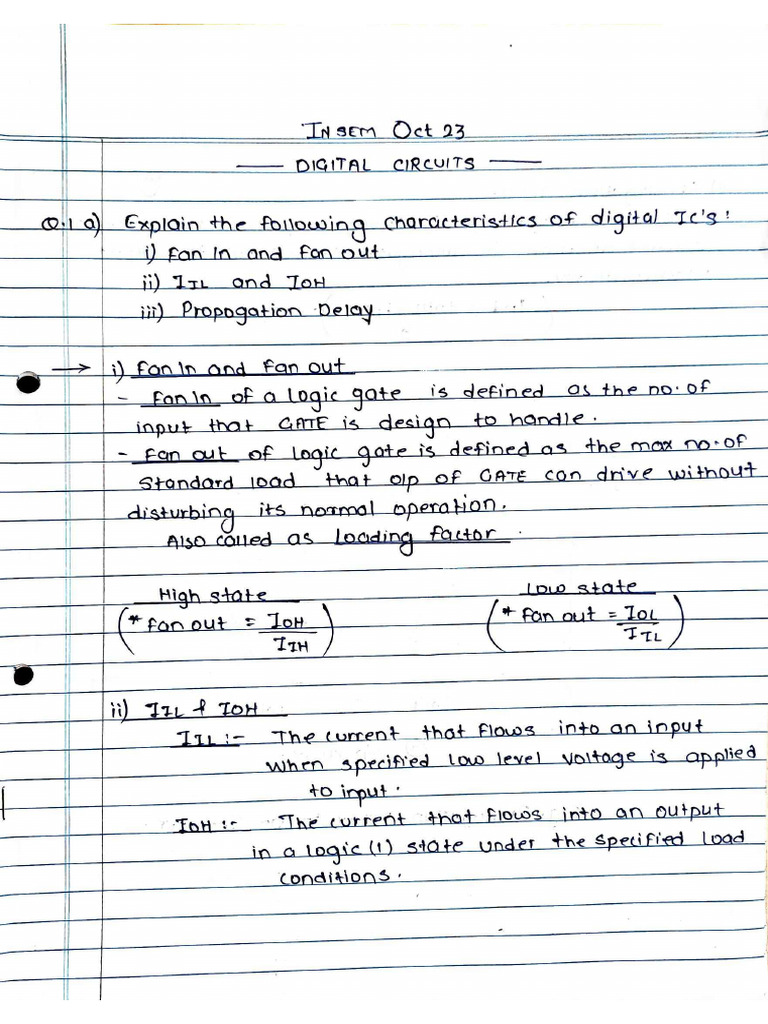 INSEM Oct 23
DIGITAL CIRCUITS
Q.1 a) Explain the following characteristics of digital Ic's:
i) Fan In and Fan out
ii) IIL and IOH
iii) Propogation Delay
→ i) Fan In and Fan out
- Fan In of a logic gate is defined as the no. of
input that GATE is design to handle.
- Fan out of logic gate is defined as the max no. of
Standard load that o/p of GATE can drive without
disturbing its normal operation.
Also called as Loading Factor.
High state Low state
(* Fan out = IOH / IIH) (* Fan out = IOL / IIL)
ii) IIL & IOH
IIL :- The current that flows into an input
when specified low level voltage is applied
to input.
IOH :- The current that flows into an output
in a logic (1) state under the specified load
conditions.